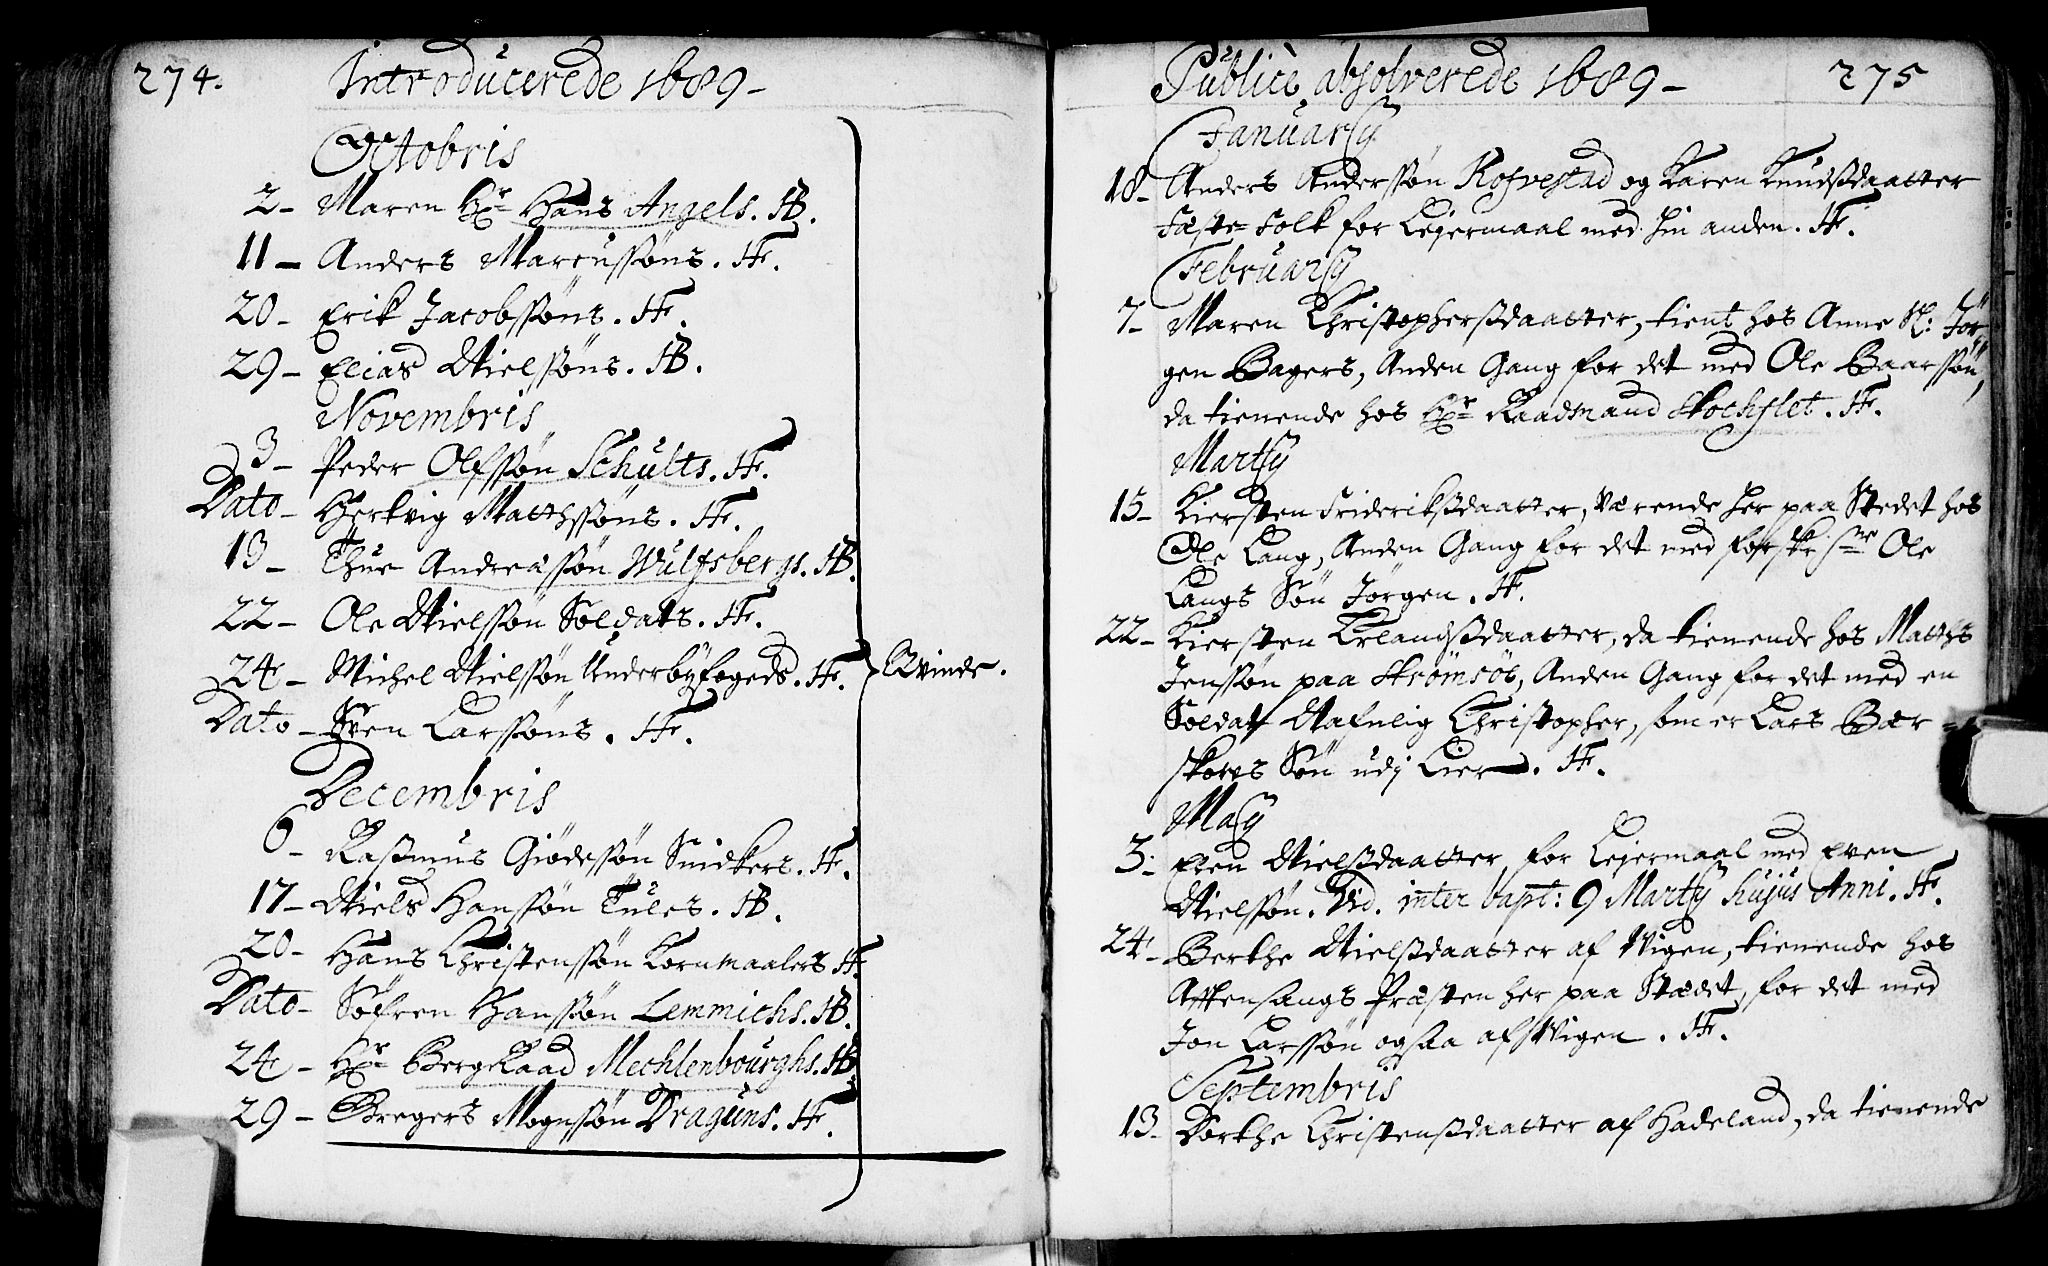 274. Introducerede 1689 -
Octobris
2 - Maren Hr Hans Angels. HB.
11 - Anders Marcussøns. HF.
20 - Erik Jacobssøns. HF.
29 - Elias Nielssøns. HB.
Novembris
3 - Peder Olfssøn Schults. HF.
Dato - Hertvig Matthssøns. HF.
13 - Thue Andreæsøn Wulfsbergs. HB.
22 - Ole Nielssøn Soldats. HF.
24 - Michel Nielssøn Underbyfogeds. HF. } Qvinde.
Dato - Sven Larssøns. HF.
Decembris
6 - Rasmus Giødessøn Snidkers. HF.
17 - Niels Hanssøn Tules. HB.
20 - Hans Christenssøn Kornmaalers HF.
Dato - Søfren Hanssøn Lemmichs. HB.
24 - Hr Berg Raad Mechlenbourghs. HB
29 - Gregers Mognssøn Draguns. HF.
Publicè absolverede 1689 - 275
Januarij
18 - Anders Anderssøn Rofvestad og Karen Knudsdaatter
Fæste-Folk for Lejermaal med hin anden. HF.
Februarij
7 - Maren Christophersdaatter, tient hos Anne Sl: Jør
gen Bagers, Anden Gang for det med Ole Baarssøn,
da tienende hos Hr Raadmand Stochflet. HF.
Martij
15 - Kiersten Frideriksdaatter, værende her paa Stedet hos
Ole Lang, Anden Gang for det med Ole
Langs Søn Jørgen. HF.
22 - Kiersten Erlandsdaatter, da tienende hos Matths
Jenssøn paa Strømsøe, Anden Gang for det med en
Soldat Nafnlig Christopher, som er Lars Bær-
skovs Søn udj Lier. HF.
Maij
3. Elen Nielsdaatter for Lejermaal med Even
Nielssøn. Vid. inter bapt: 9 Martij hujus Anni. HF.
24 - Berthe Nielsdaatter af Wigen, tienende hos
Aftensangs Præsten her paa Stædet, for det med
Jon Larssøn ogsaa af Wigen. HF.
Septembris
13 - Dorthe Christensdaatter af Hadeland, da tienende